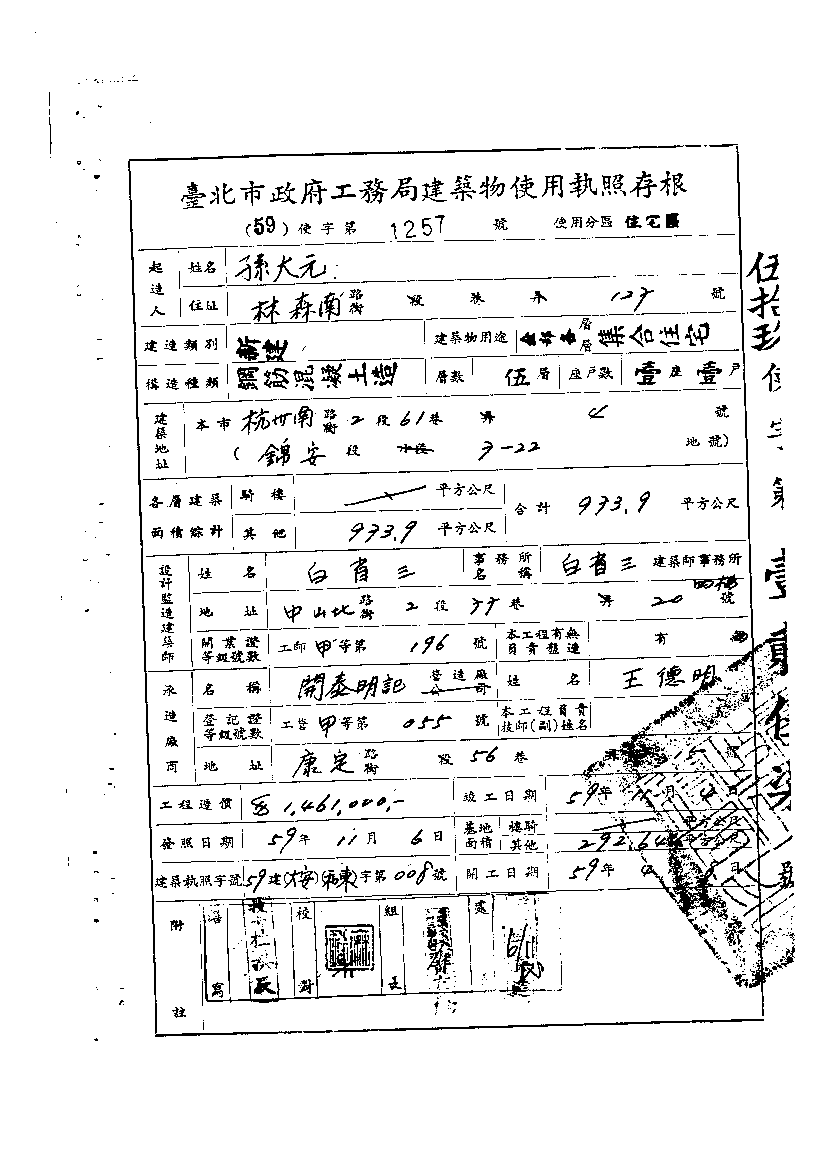 臺北市政府工務局建築物使用執照存根
(59)使字第 1257 號 使用分區 住宅區
起造人 姓名 孫大元
住址 林森南路街 段 巷 弄 127 號
建造類別 新建 建築物用途 層層集合住宅
構造種類 鋼筋混凝土造 層數 伍層 座戶數 壹座壹戶
建築地址 本市 杭州南路街 2段 61巷 弄 4 號
(錦安 段 小段 3-22 地號)
各層建築面積綜計 騎樓 平方公尺 合計 933.9 平方公尺
其他 933.9 平方公尺
設計監造建築師 姓名 白省三 事務所名稱 白省三 建築師事務所
地址 中山北路街 2段 77巷 弄 20 號 四樓
開業證等級號數 工師甲等第 196 號 本工程有無負責監造 有
承造廠商 名稱 開泰明記 營造廠公司 姓名 王德明
登記證等級號數 工營甲等第 055 號 本工程負責技師(副)姓名
地址 康定路街 段 56巷 15
工程造價 1,461,000,- 竣工日期 59年 11月 4日
發照日期 59年 11月 6日 基地面積 騎樓 平方公尺
其他 292.64 平方公尺
建築執照字號 59建(大安)(和東)字第008號 開工日期 59年 4 8日
附註 繕寫 校對 組長 處
伍拾玖使字第壹貳伍柒號